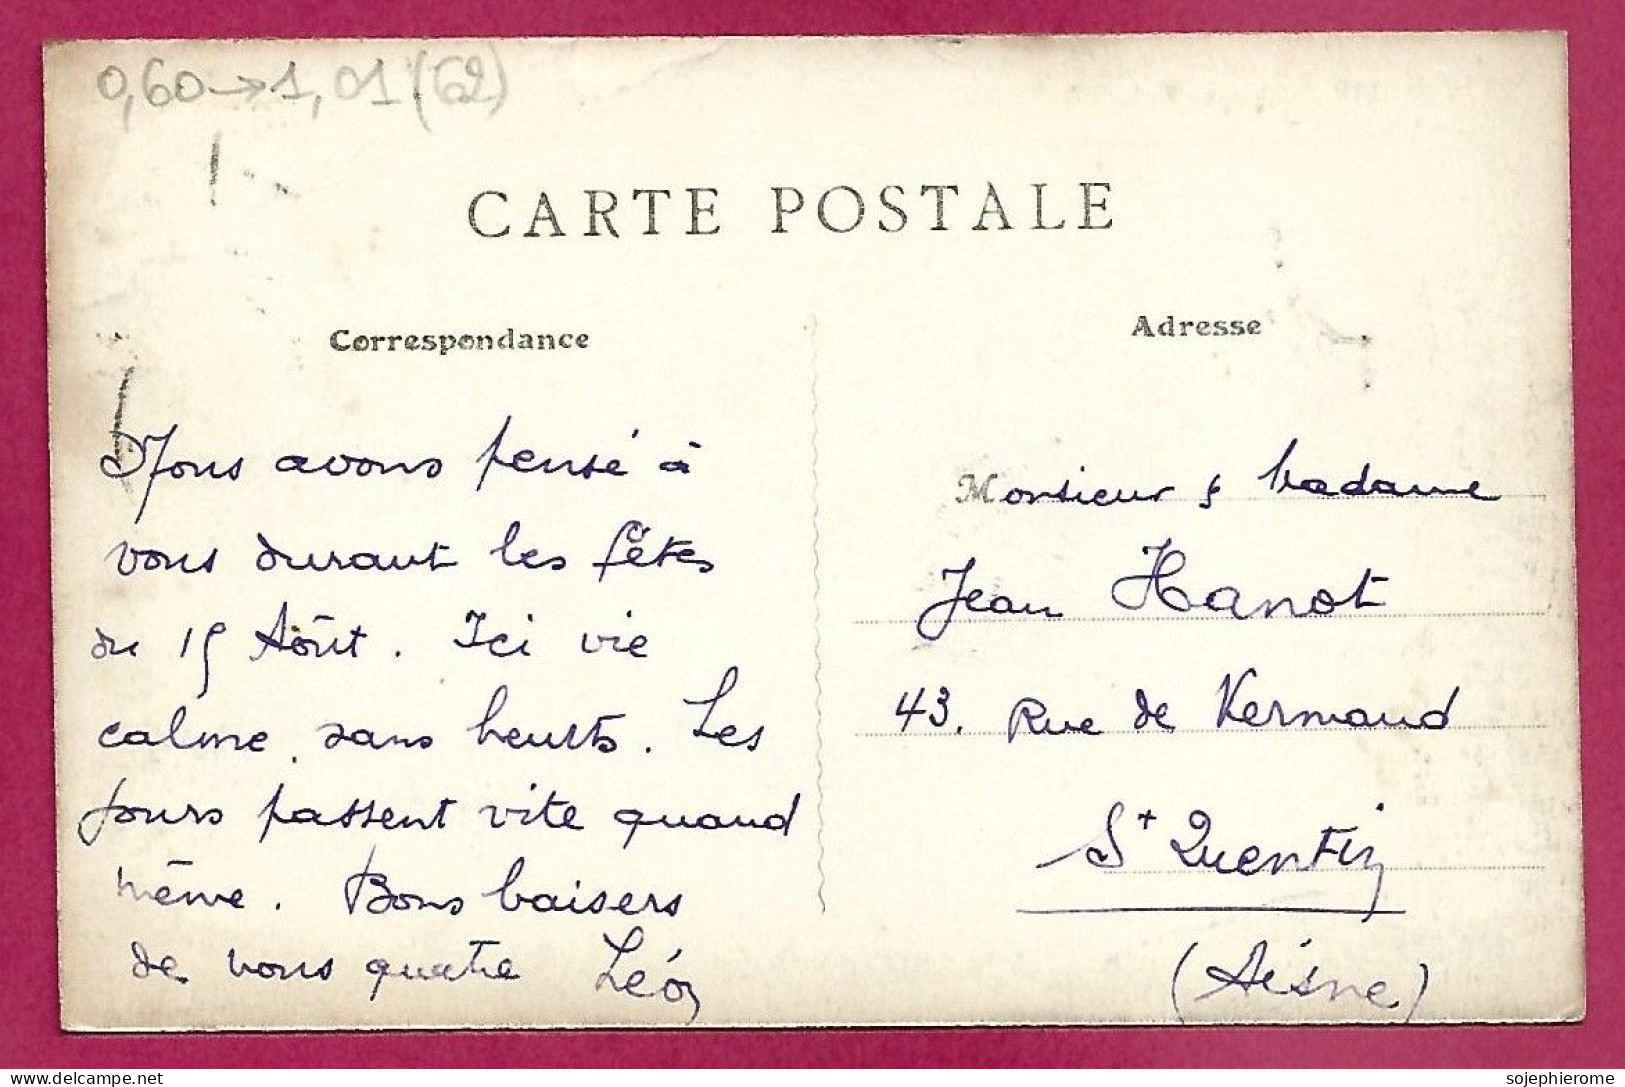 0,60→1,01(62)
CARTE POSTALE
Correspondance
Nous avons pensé à
vous durant les fêtes
du 15 Août. Ici vie
calme, sans heurts. Les
jours passent vite quand
même. Bons baisers
de nous quatre Léon
Adresse
Monsieur & Madame
Jean Hanot
43. Rue de Vermand
St Quentin
(Aisne)
delcampe.net
sojephierome